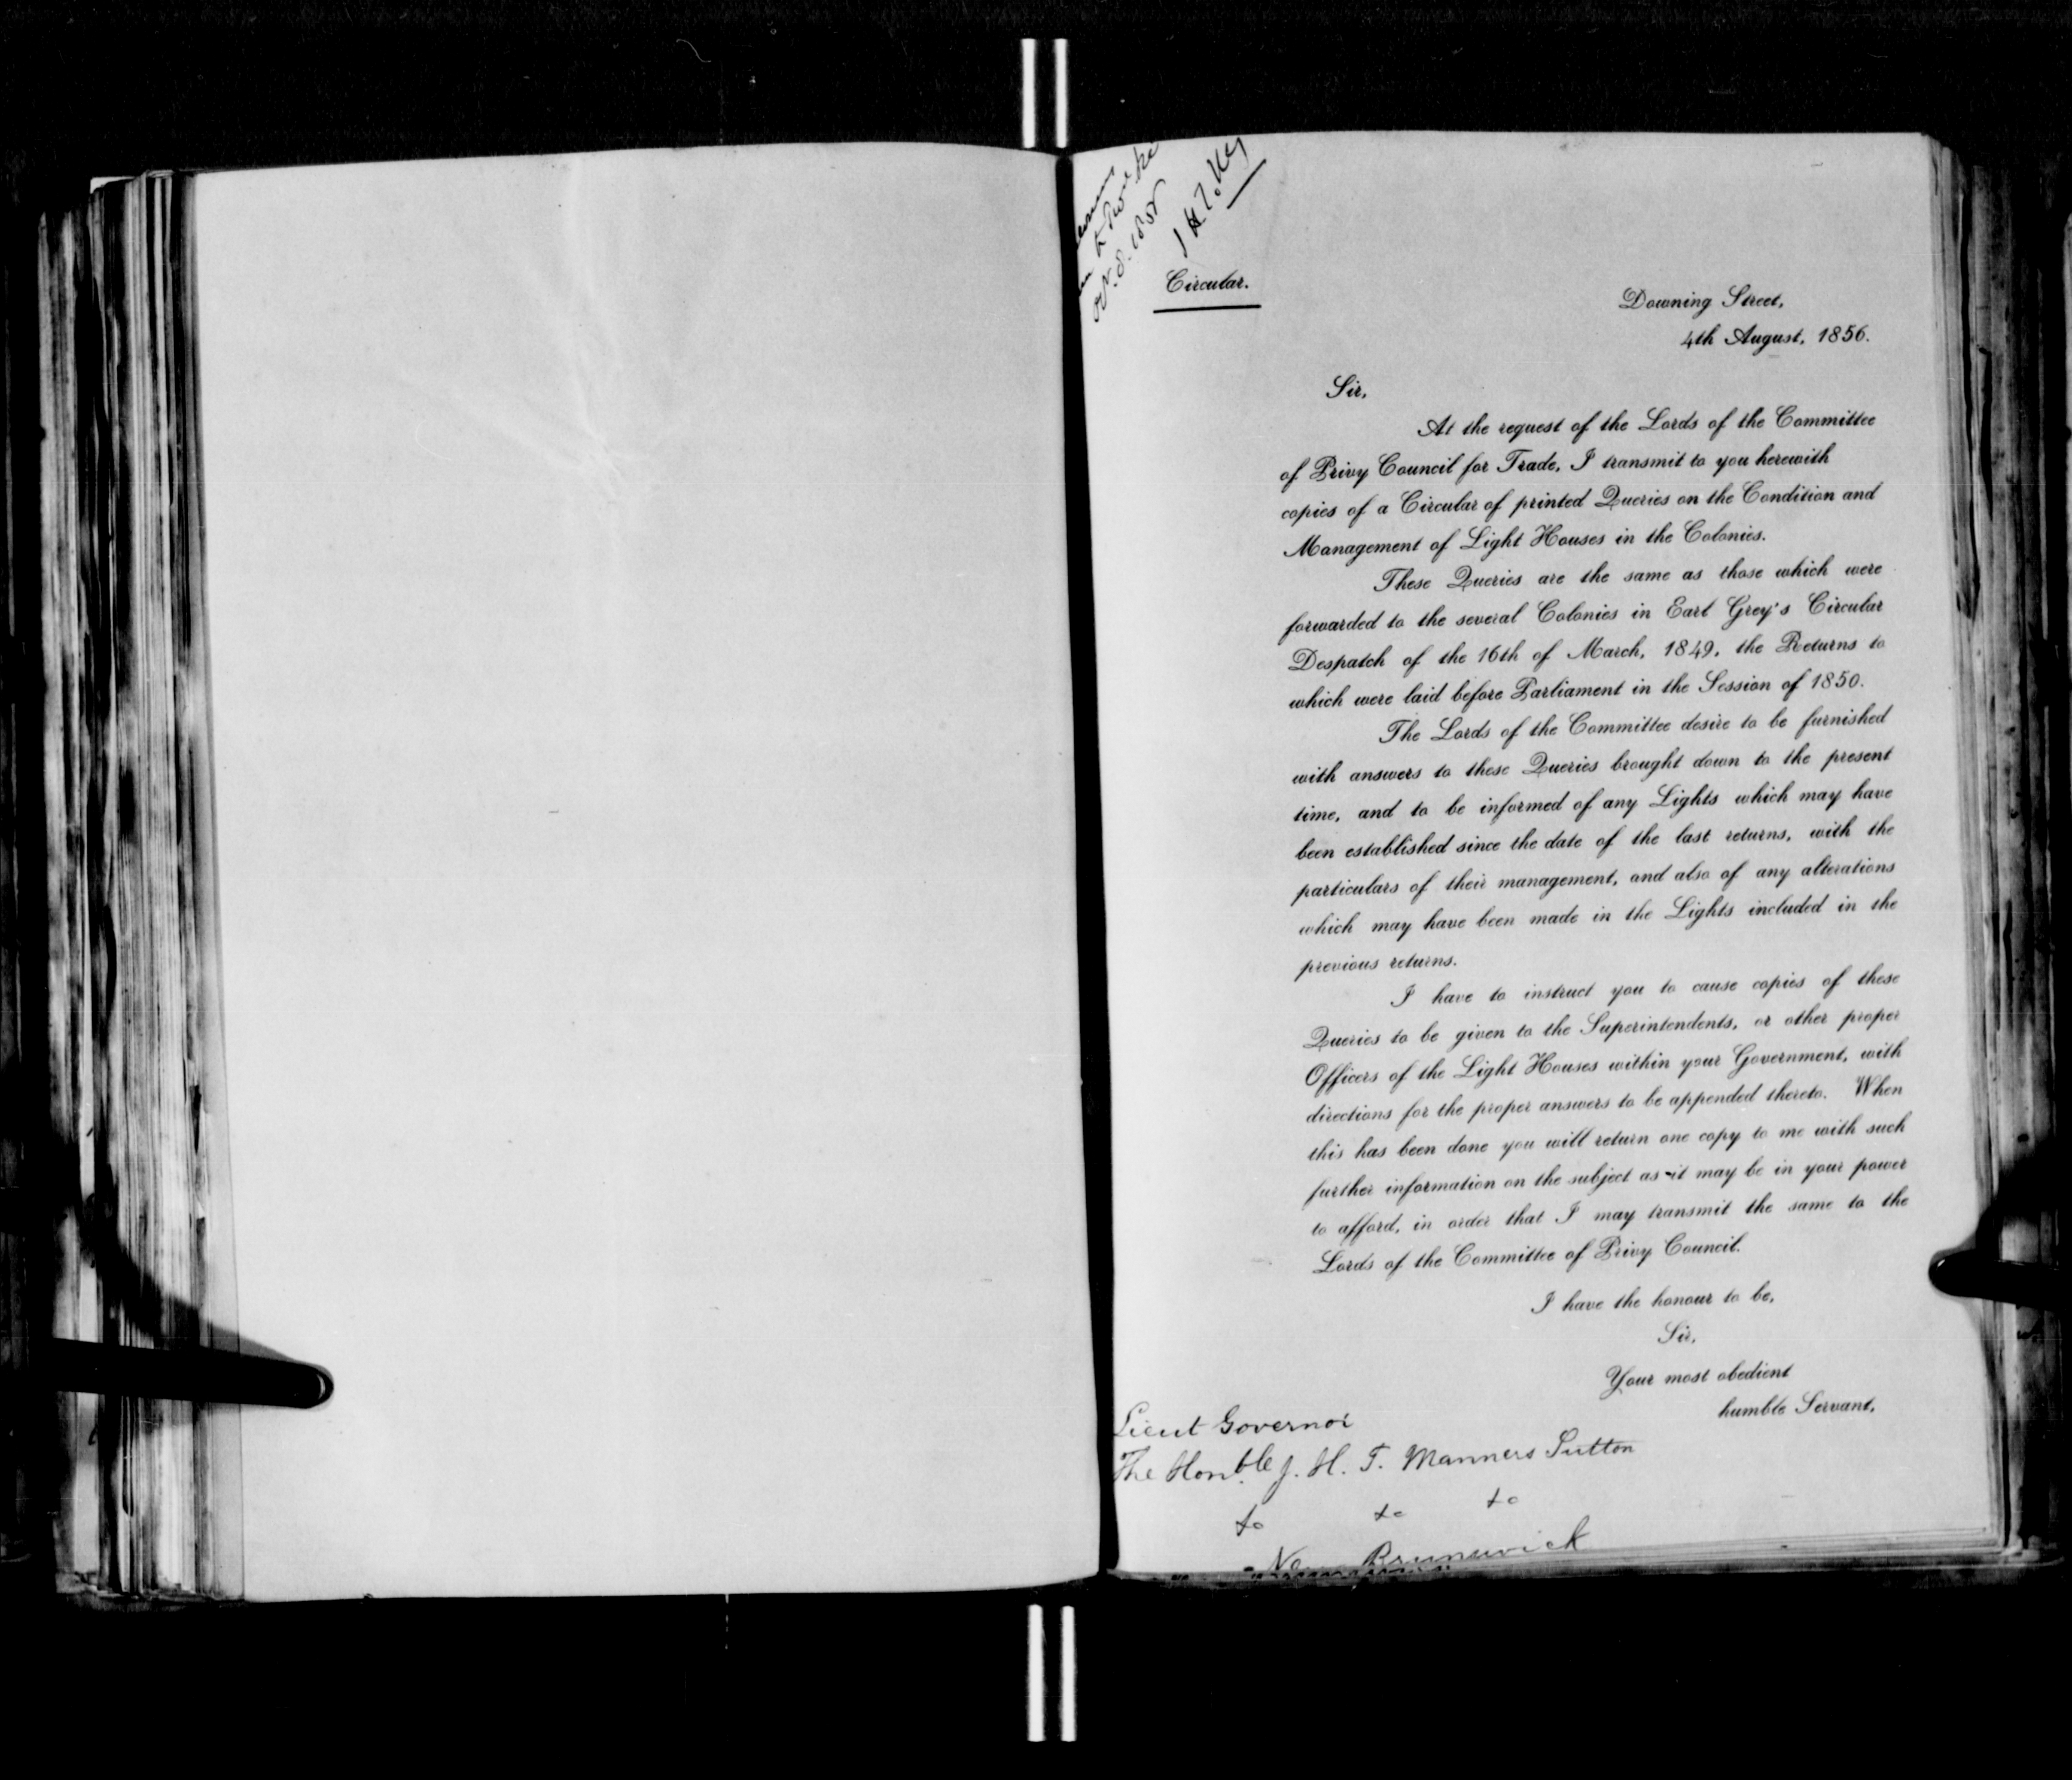 Circular.
Downing Street,
4th August, 1856.
Sir,
At the request of the Lords of the Committee
of Privy Council for Trade, I transmit to you herewith
copies of a Circular of printed Queries on the Condition and
Management of Light Houses in the Colonies.
These Queries are the same as those which were
forwarded to the several Colonies in Earl Grey's Circular
Despatch of the 16th of March, 1849, the Returns to
which were laid before Parliament in the Session of 1850.
The Lords of the Committee desire to be furnished
with answers to these Queries brought down to the present
time, and to be informed of any Lights which may have
been established since the date of the last returns, with the
particulars of their management, and also of any alterations
which may have been made in the Lights included in the
previous returns.
I have to instruct you to cause copies of these
Queries to be given to the Superintendents, or other proper
Officers of the Light Houses within your Government, with
directions for the proper answers to be appended thereto. When
this has been done you will return one copy to me with such
further information on the subject as it may be in your power
to afford, in order that I may transmit the same to the
Lords of the Committee of Privy Council.
I have the honour to be,
Sir,
Your most obedient
humble Servant,
Lieut Governor
The Honble J. H. T. Manners Sutton
New Brunswick